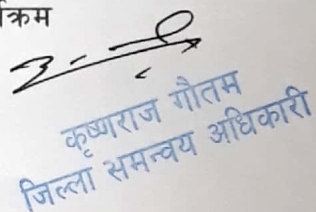 क्रम
कृष्णराज गौतम
जिल्ला समन्वय अधिकारी